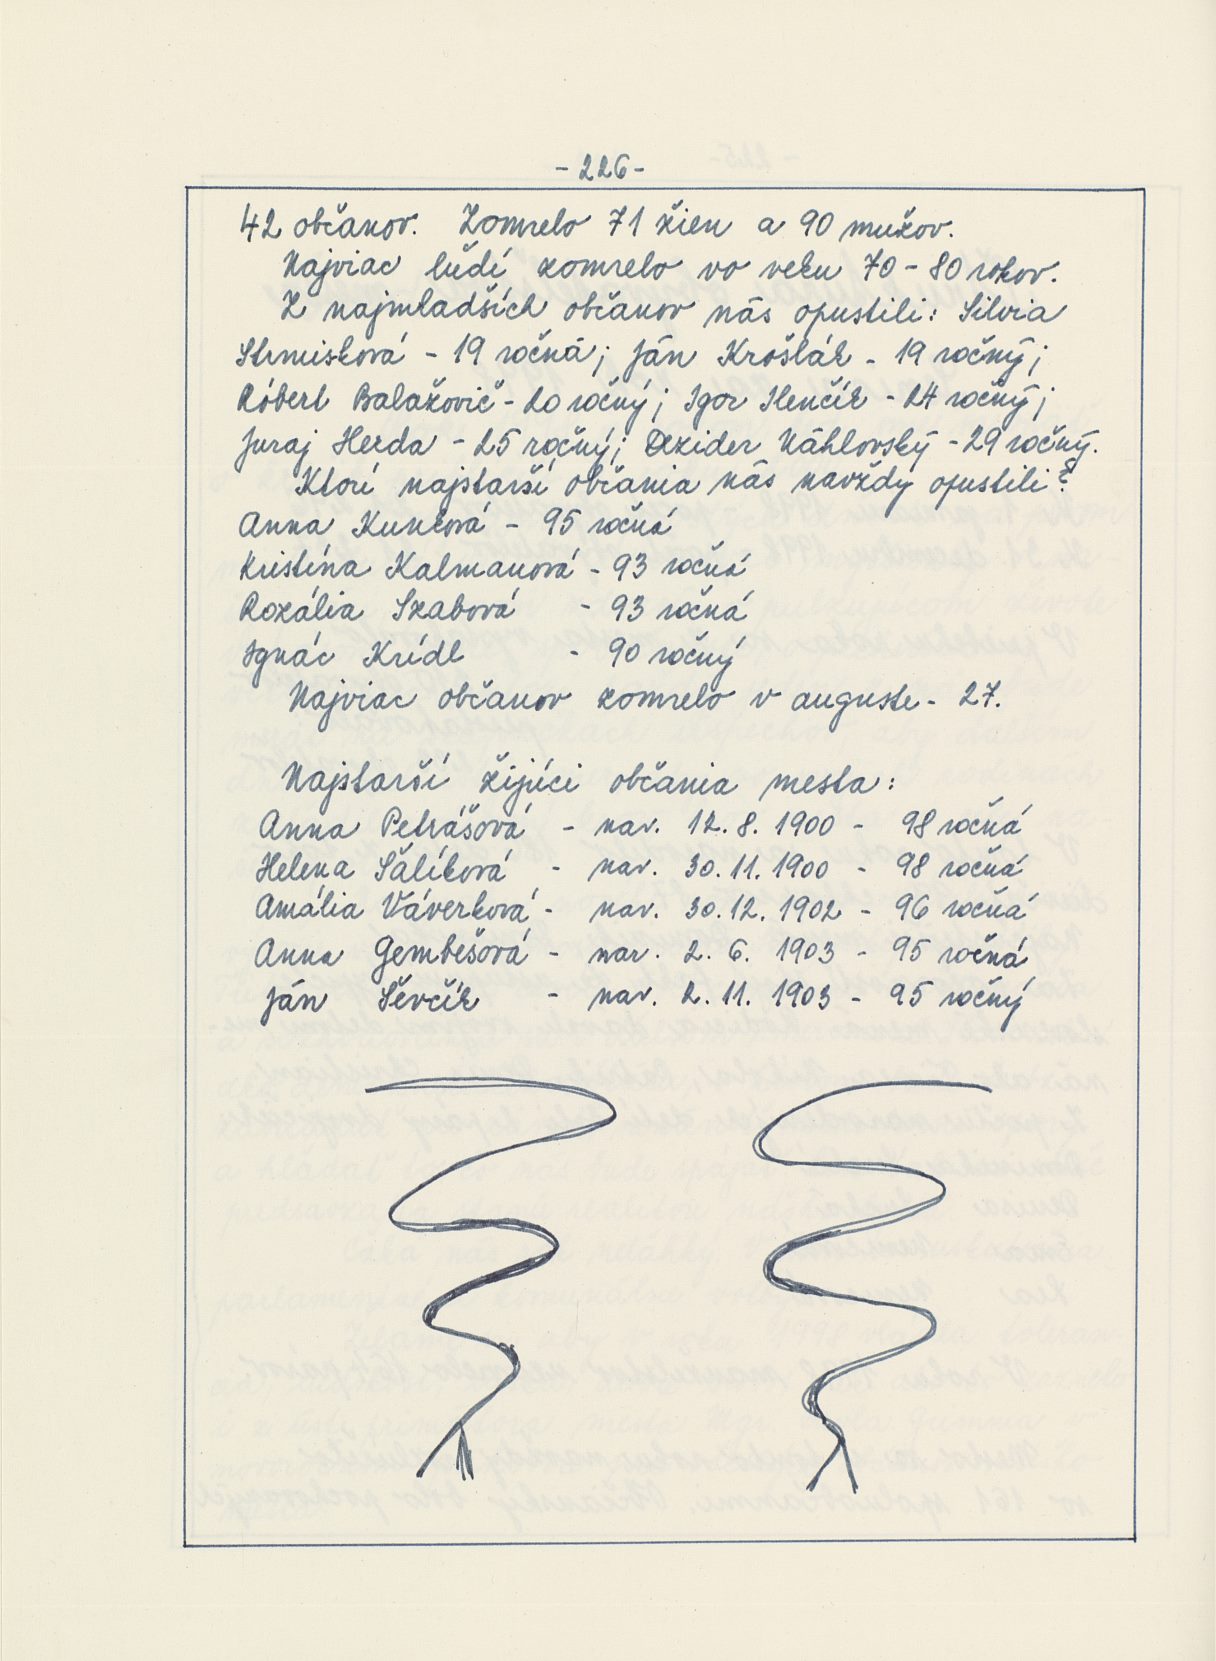 - 226 -
42 občanov. Zomrelo 71 žien a 90 mužov.
Najviac ľudí zomrelo vo veku 70 - 80 rokov.
Z najmladších občanov nás opustili: Silvia
Strmisková - 19 ročná; Ján Krošlák - 19 ročný;
Róbert Balažovič - 20 ročný; Igor Ilenčík - 24 ročný;
Juraj Herda - 25 ročný; Dezider Náhlovský - 29 ročný.
Ktorí najstarší občania nás navždy opustili?
Anna Kuncová - 95 ročná
Kristína Kalmanová - 93 ročná
Rozália Szabová - 93 ročná
Ignác Krídl - 90 ročný
Najviac občanov zomrelo v auguste - 27.
Najstarší žijúci občania mesta:
Anna Petrášová - nar. 12. 8. 1900 - 98 ročná
Helena Šálíková - nar. 30. 11. 1900 - 98 ročná
Amália Váverková - nar. 30. 12. 1902 - 96 ročná
Anna Gembešová - nar. 2. 6. 1903 - 95 ročná
Ján Ševčík - nar. 2. 11. 1903 - 95 ročný